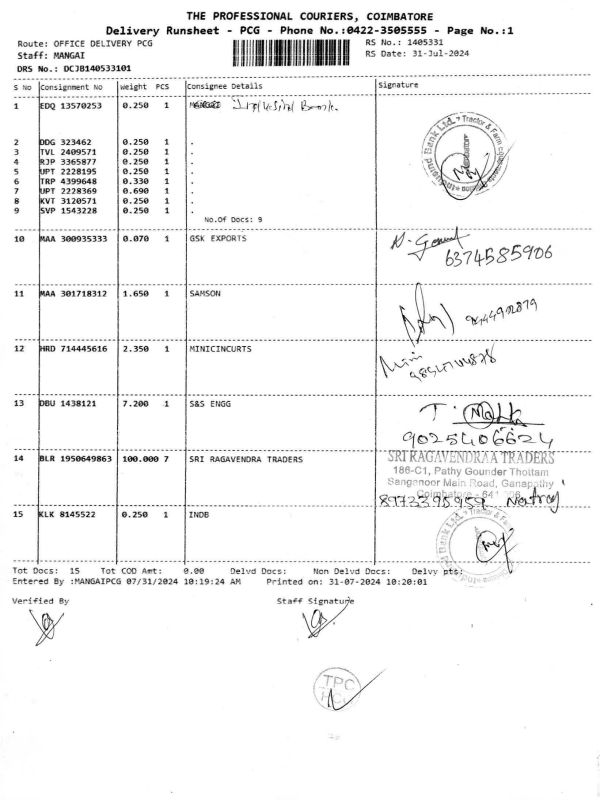 THE PROFESSIONAL COURIERS, COIMBATORE
Delivery Runsheet - PCG - Phone No.:0422-3505555 - Page No.:1
Route: OFFICE DELIVERY PCG RS No.: 1405331
Staff: MANGAI RS Date: 31-Jul-2024
DRS No.: DCJB140533101
S No Consignment No Weight PCS Consignee Details Signature
1 EDQ 13570253 0.250 1
2 DDG 323462 0.250 1 .
3 TVL 2409571 0.250 1 .
4 RJP 3365877 0.250 1 .
5 UPT 2228195 0.250 1 .
6 TRP 4399648 0.330 1 .
7 UPT 2228369 0.690 1 .
8 KVT 3120571 0.250 1 .
9 SVP 1543228 0.250 1 .
No.Of Docs: 9
Bank Ltd. * Tractor & Farm
10 MAA 300935333 0.070 1 GSK EXPORTS
6374585906
11 MAA 301718312 1.650 1 SAMSON
12 HRD 714445616 2.350 1 MINICINCURTS
13 DBU 1438121 7.200 1 S&S ENGG
9025406624
14 BLR 1950649863 100.000 7 SRI RAGAVENDRA TRADERS
SRI RAGAVENDRAA TRADERS
186-C1, Pathy Gounder Thottam
Sanganoor Main Road, Ganapathy
Coimbatore - 641 006
15 KLK 8145522 0.250 1 INDB
Bank Ltd. * Tractor & Farm
Tot Docs: 15 Tot COD Amt: 0.00 Delvd Docs: Non Delvd Docs: Delvy pts:
Entered By :MANGAIPCG 07/31/2024 10:19:24 AM Printed on: 31-07-2024 10:20:01
Verified By Staff Signature
TPC